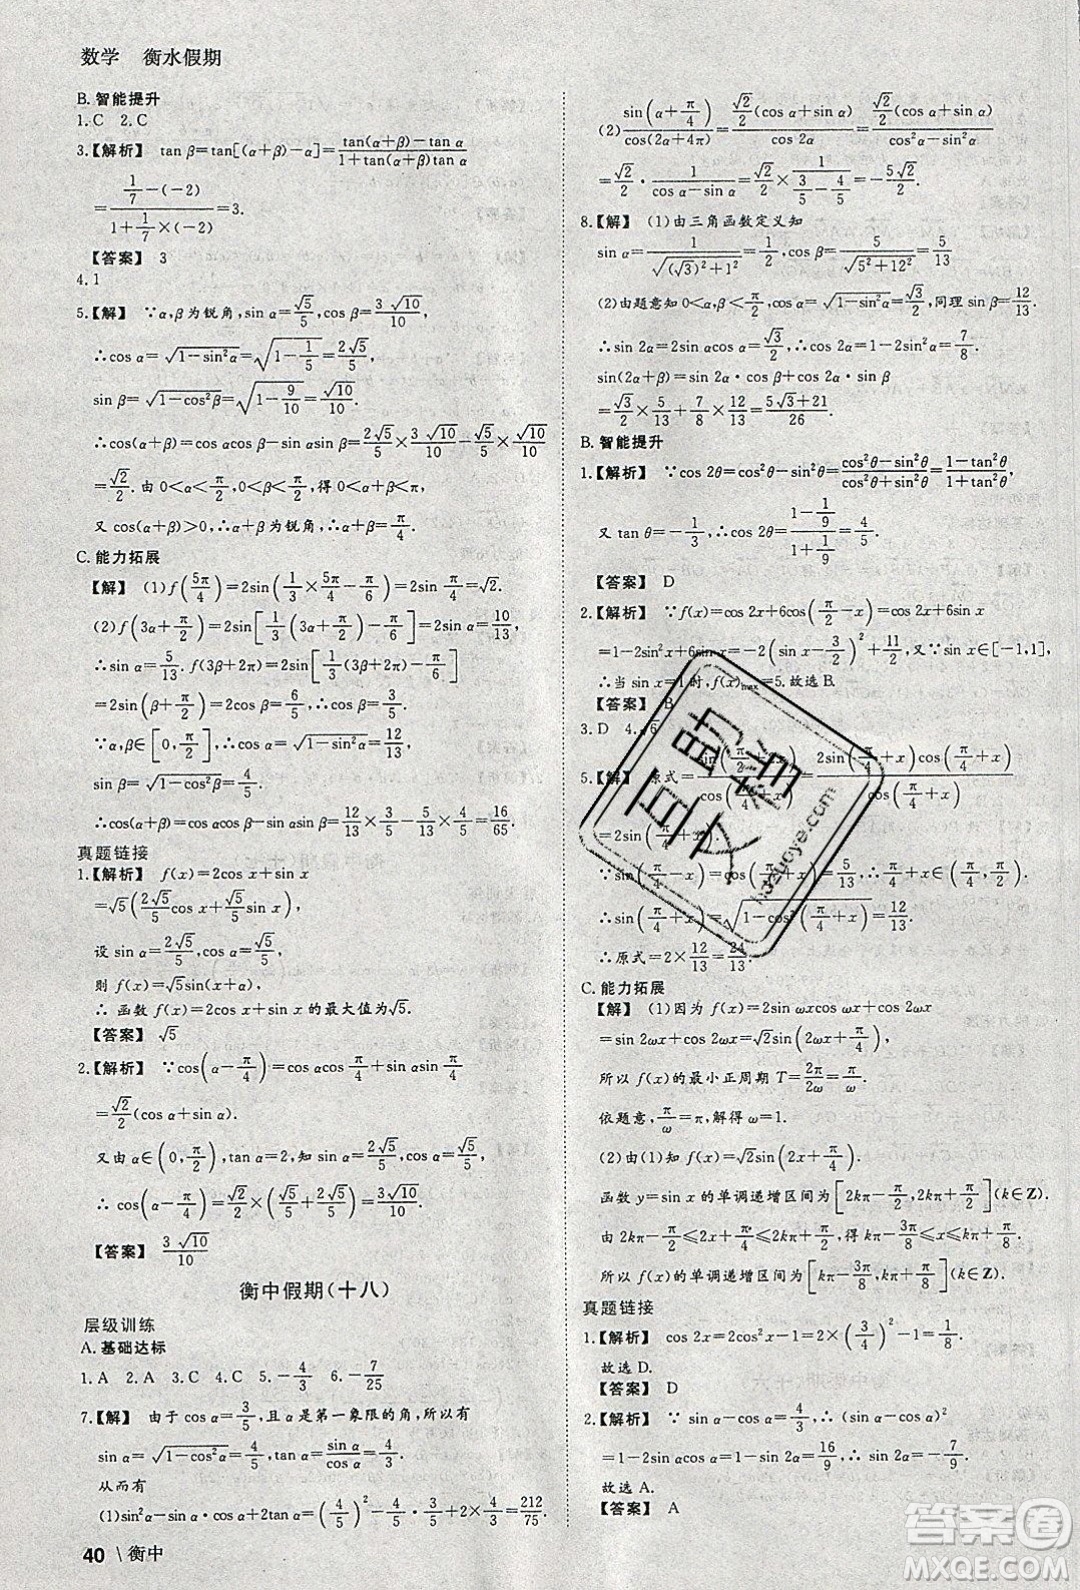 数学 衡水假期
B. 智能提升
1.C 2.C
3.【解析】 tan β=tan[(α+β)-α]=(tan(α+β)-tan α)/(1+tan(α+β)tan α)
=(1/7-(-2))/(1+1/7×(-2))=3.
【答案】 3
4.1
5.【解】 ∵α,β为锐角,sin α=√5/5,cos β=3√10/10,
∴cos α=√(1-sin²α)=√(1-1/5)=2√5/5,
sin β=√(1-cos²β)=√(1-9/10)=√10/10.
∴cos(α+β)=cos αcos β-sin αsin β=2√5/5×3√10/10-√5/5×√10/10=
√2/2. 由 0<α<π/2,0<β<π/2,得 0<α+β<π,
又 cos(α+β)>0,∴α+β为锐角,∴α+β=π/4.
C. 能力拓展
【解】 (1)f(5π/4)=2sin(1/3×5π/4-π/6)=2sin π/4=√2.
(2)f(3α+π/2)=2sin[1/3(3α+π/2)-π/6]=10/13,
∴sin α=5/13. f(3β+2π)=2sin[1/3(3β+2π)-π/6]
=2sin(β+π/2)=6/5,∴cos β=3/5.
∵α,β∈[0,π/2],∴cos α=√(1-sin²α)=12/13,
sin β=√(1-cos²β)=4/5.
∴cos(α+β)=cos αcos β-sin αsin β=12/13×3/5-5/13×4/5=16/65.
真题链接
1.【解析】 f(x)=2cos x+sin x
=√5(2√5/5 cos x+√5/5 sin x),
设 sin α=2√5/5,cos α=√5/5,
则 f(x)=√5sin(x+α),
∴ 函数 f(x)=2cos x+sin x 的最大值为√5.
【答案】 √5
2.【解析】 ∵cos(α-π/4)=cos αcos π/4+sin αsin π/4=
√2/2(cos α+sin α).
又由 α∈(0,π/2),tan α=2知,sin α=2√5/5,cos α=√5/5,
∴cos(α-π/4)=√2/2×(√5/5+2√5/5)=3√10/10.
【答案】 3√10/10
衡中假期(十八)
层级训练
A. 基础达标
1.A 2.A 3.C 4.C 5.-4/3 6.-7/25
7.【解】 由于 cos α=3/5,且 α 是第一象限的角,所以有
sin α=√(1-cos²α)=4/5,tan α=sin α/cos α=4/3.
从而有
(1)sin²α-sin αcos α+2tan α=(4/5)²-4/5·3/5+2×4/3=212/75.
40 \ 衡中
(2)sin(α+π/4)/cos(2α+4π)=(√2/2(cos α+sin α))/cos 2α=(√2/2(cos α+sin α))/(cos²α-sin²α)=
√2/2·1/(cos α-sin α)=√2/2×1/(3/5-4/5)=-5√2/2.
8.【解】 (1)由三角函数定义知
sin α=√3/√((√3)²+1²)=√3/2,cos β=5/√(5²+12²)=5/13.
(2)由题意知 0<α,β<π/2,cos α=√(1-sin²α)=1/2,同理 sin β=12/13.
∴sin 2α=2sin αcos α=√3/2,cos 2α=2cos²α-1=-1/2,
sin(2α+β)=sin 2α·cos β+cos 2α·sin β
B. 智能提升
1.【解析】 ∵cos 2θ=cos²θ-sin²θ=(cos²θ-sin²θ)/(cos²θ+sin²θ)=(1-tan²θ)/(1+tan²θ),
又 tan θ=-1/3,∴cos 2θ=(1-1/9)/(1+1/9)=4/5.
【答案】 D
2.【解析】 ∵f(x)=cos 2x+6cos(π/2-x)=cos 2x+6sin x
=1-2sin²x+6sin x=-2(sin x-3/2)²+11/2,又 sin x∈[-1,1],
∴当 sin x=1时,f(x)max=5.故选 B.
【答案】 B
3.D 4.√6
=2sin(π/4+x).
∴原式=2×12/13=24/13.
C. 能力拓展
【解】 (1)因为 f(x)=2sin ωxcos ωx+cos 2ωx
=sin 2ωx+cos 2ωx=√2sin(2ωx+π/4),
所以 f(x)的最小正周期 T=2π/2ω=π/ω.
依题意,π/ω=π,解得 ω=1.
(2)由(1)知 f(x)=√2sin(2x+π/4).
函数 y=sin x 的单调递增区间为[2kπ-π/2,2kπ+π/2](k∈Z).
由 2kπ-π/2≤2x+π/4≤2kπ+π/2,得 kπ-3π/8≤x≤kπ+π/8,
所以 f(x)的单调递增区间为[kπ-3π/8,kπ+π/8](k∈Z).
真题链接
1.【解析】 cos 2x=2cos²x-1=2×(3/4)²-1=1/8.
故选 D.
【答案】 D
2.【解析】 ∵ sin α-cos α=4/3,∴(sin α-cos α)²
=1-2sin αcos α=1-sin 2α=16/9,∴sin 2α=-7/9.
故选 A.
【答案】 A
答案圈
MXQE.COM